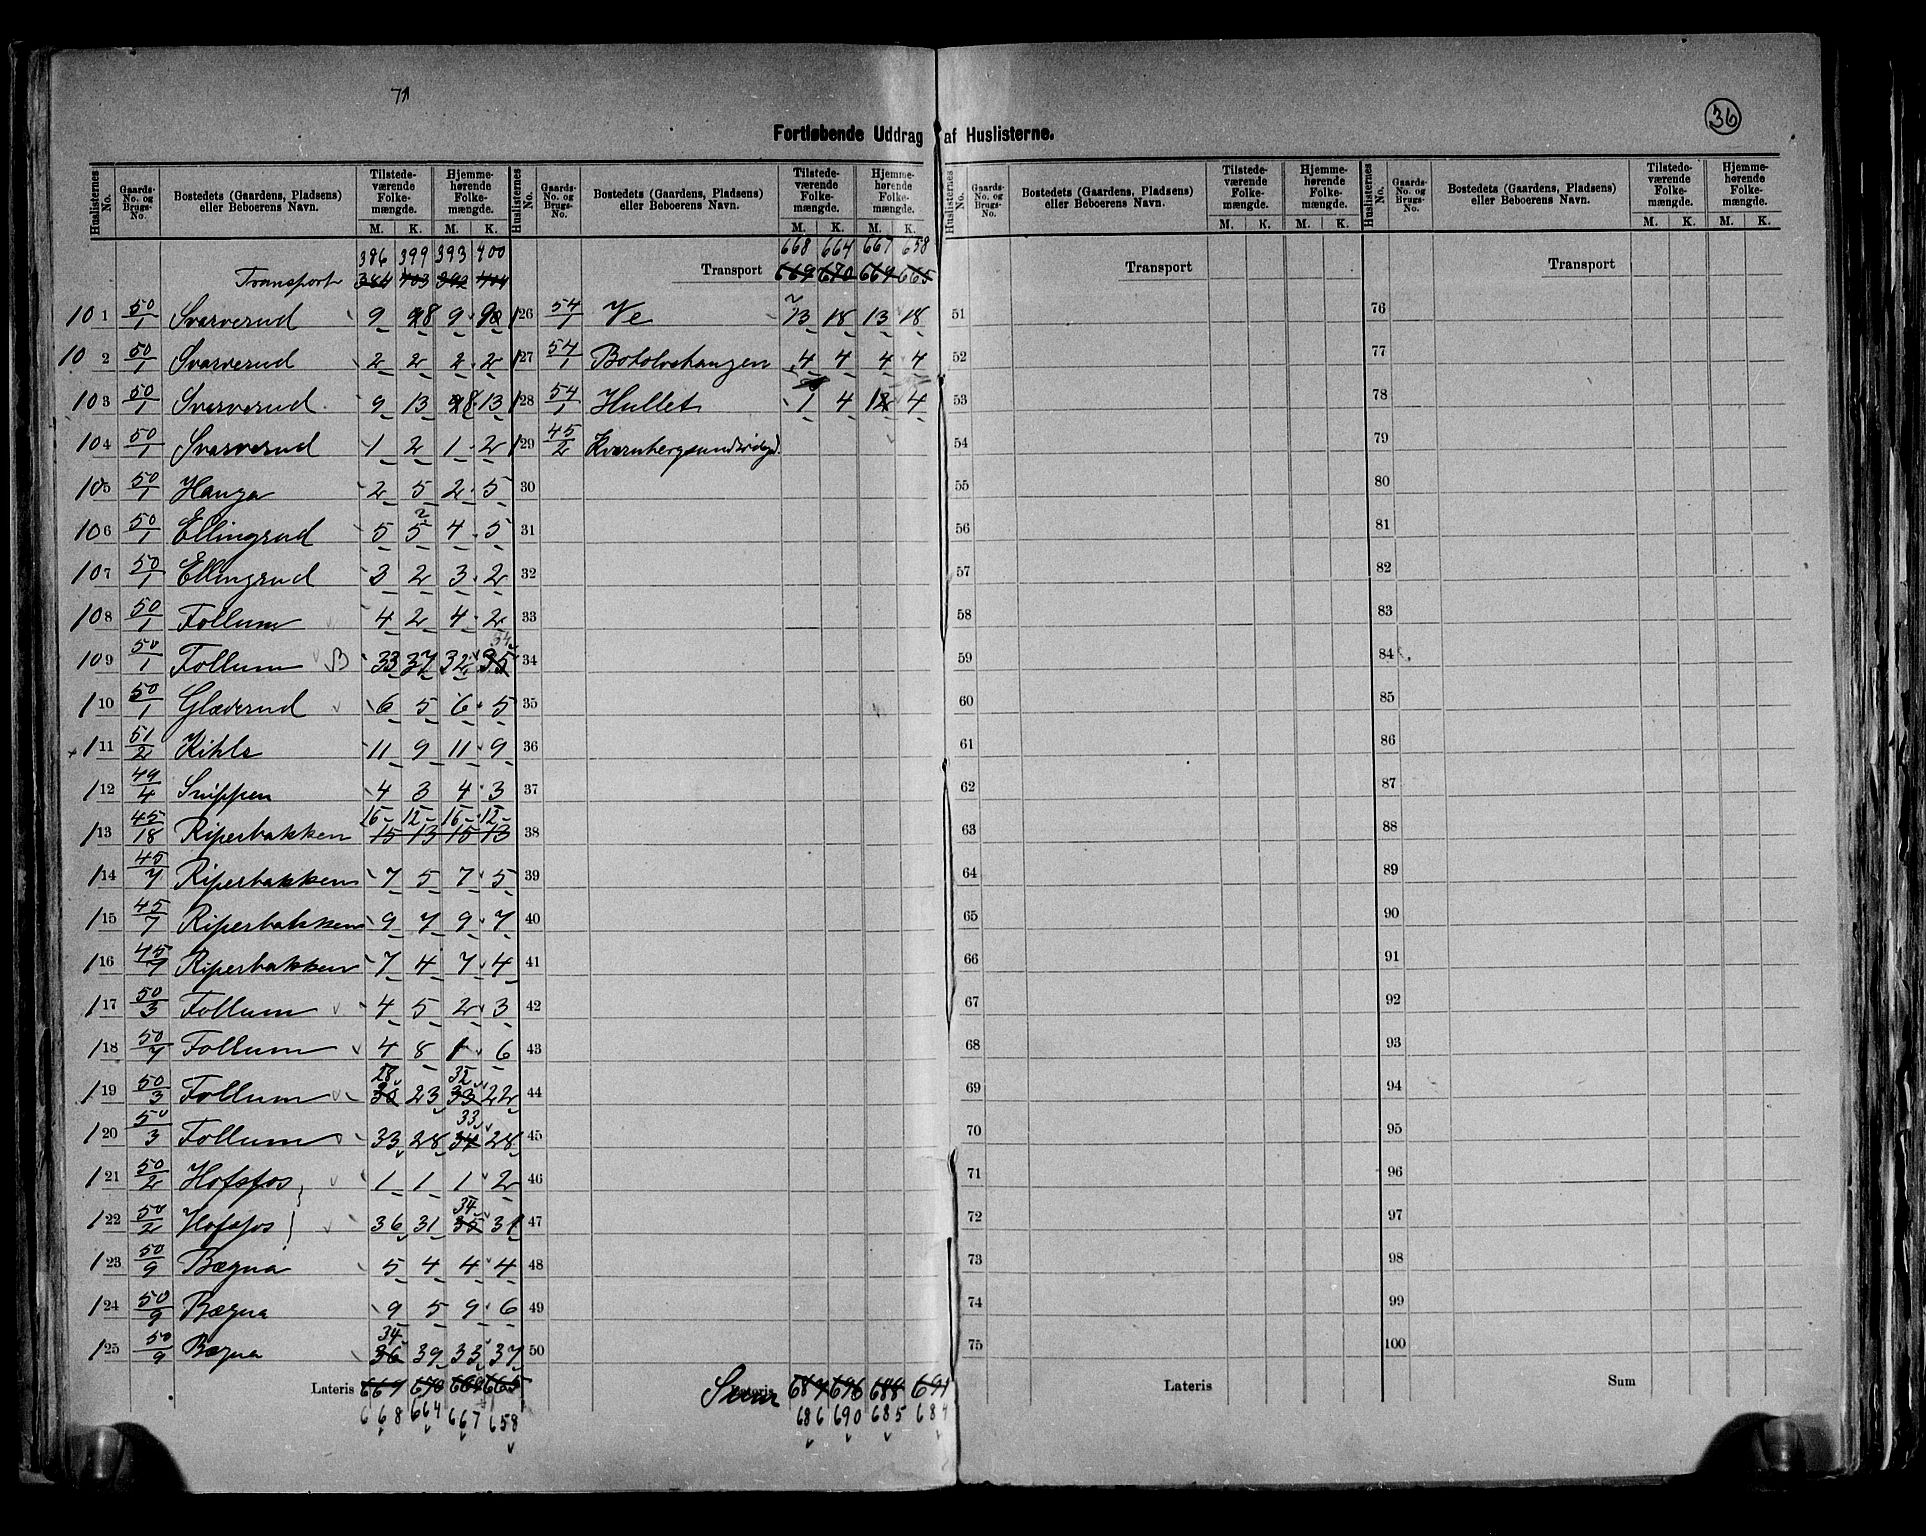 71
36
Fortløbende Uddrag af Huslisterne.
Huslisternes No. Gaards-No. og Brugs-No. Bostedets (Gaardens, Pladsens) eller Beboerens Navn. Tilstedeværende Folkemængde. M. K. Hjemmehørende Folkemængde. M. K.
386 399 393 400
Transport 384 403 392 404
101 50/1 Svarverud 9 8 9
102 50/1 Svarverud 2 2 2 2
103 50/1 Svarverud 9 13 8 13
104 50/1 Svarverud 1 2 1 2
105 50/1 Hauga 2 5 2 5
106 50/1 Ellingsrud 5 5 4 5
107 50/1 Ellingsrud 3 2 3 2
108 50/1 Follum 4 2 4 2
109 50/1 Follum 33 37 32 35
110 50/1 Gladerud 6 5 6 5
111 51/2 Kihle 11 9 11 9
112 49/4 Snippen 4 3 4 3
15 12 15 12
113 45/18 Riperbakken 15 13 15 13
114 45/7 Riperbakken 7 5 7 5
115 45/7 Riperbakken 9 7 9 7
116 45/7 Riperbakken 7 4 7 4
117 50/3 Follum 4 5 2 3
118 50/7 Follum 4 8 1 6
28 32
119 50/3 Follum 30 23 33 22
33
120 50/3 Follum 33 28 34 28
121 50/2 Hofsfos 1 1 1 2
34
122 50/2 Hofsfos 36 31 35 31
123 50/9 Bægna 5 4 4 4
124 50/9 Bægna 9 5 9 6
34
125 50/9 Bægna 36 39 33 37
Lateris 669 670 669 665
668 664 667 658
Huslisternes No. Gaards-No. og Brugs-No. Bostedets (Gaardens, Pladsens) eller Beboerens Navn. Tilstedeværende Folkemængde. M. K. Hjemmehørende Folkemængde. M. K.
668 664 667 658
Transport 669 670 669 665
126 54/1 Ve 13 18 13 18
127 54/1 Botolvshaugen 4 4 4 4
128 54/1 Hullet 1 4 1 4
129 45/2
30
31
32
33
34
35
36
37
38
39
40
41
42
43
44
45
46
47
48
49
50
Lateris Sum 687 696 688 691
686 690 685 684
Huslisternes No. Gaards-No. og Brugs-No. Bostedets (Gaardens, Pladsens) eller Beboerens Navn. Tilstedeværende Folkemængde. M. K. Hjemmehørende Folkemængde. M. K.
Transport
51
52
53
54
55
56
57
58
59
60
61
62
63
64
65
66
67
68
69
70
71
72
73
74
75
Lateris
Huslisternes No. Gaards-No. og Brugs-No. Bostedets (Gaardens, Pladsens) eller Beboerens Navn. Tilstedeværende Folkemængde. M. K. Hjemmehørende Folkemængde. M. K.
Transport
76
77
78
79
80
81
82
83
84
85
86
87
88
89
90
91
92
93
94
95
96
97
98
99
100
Sum